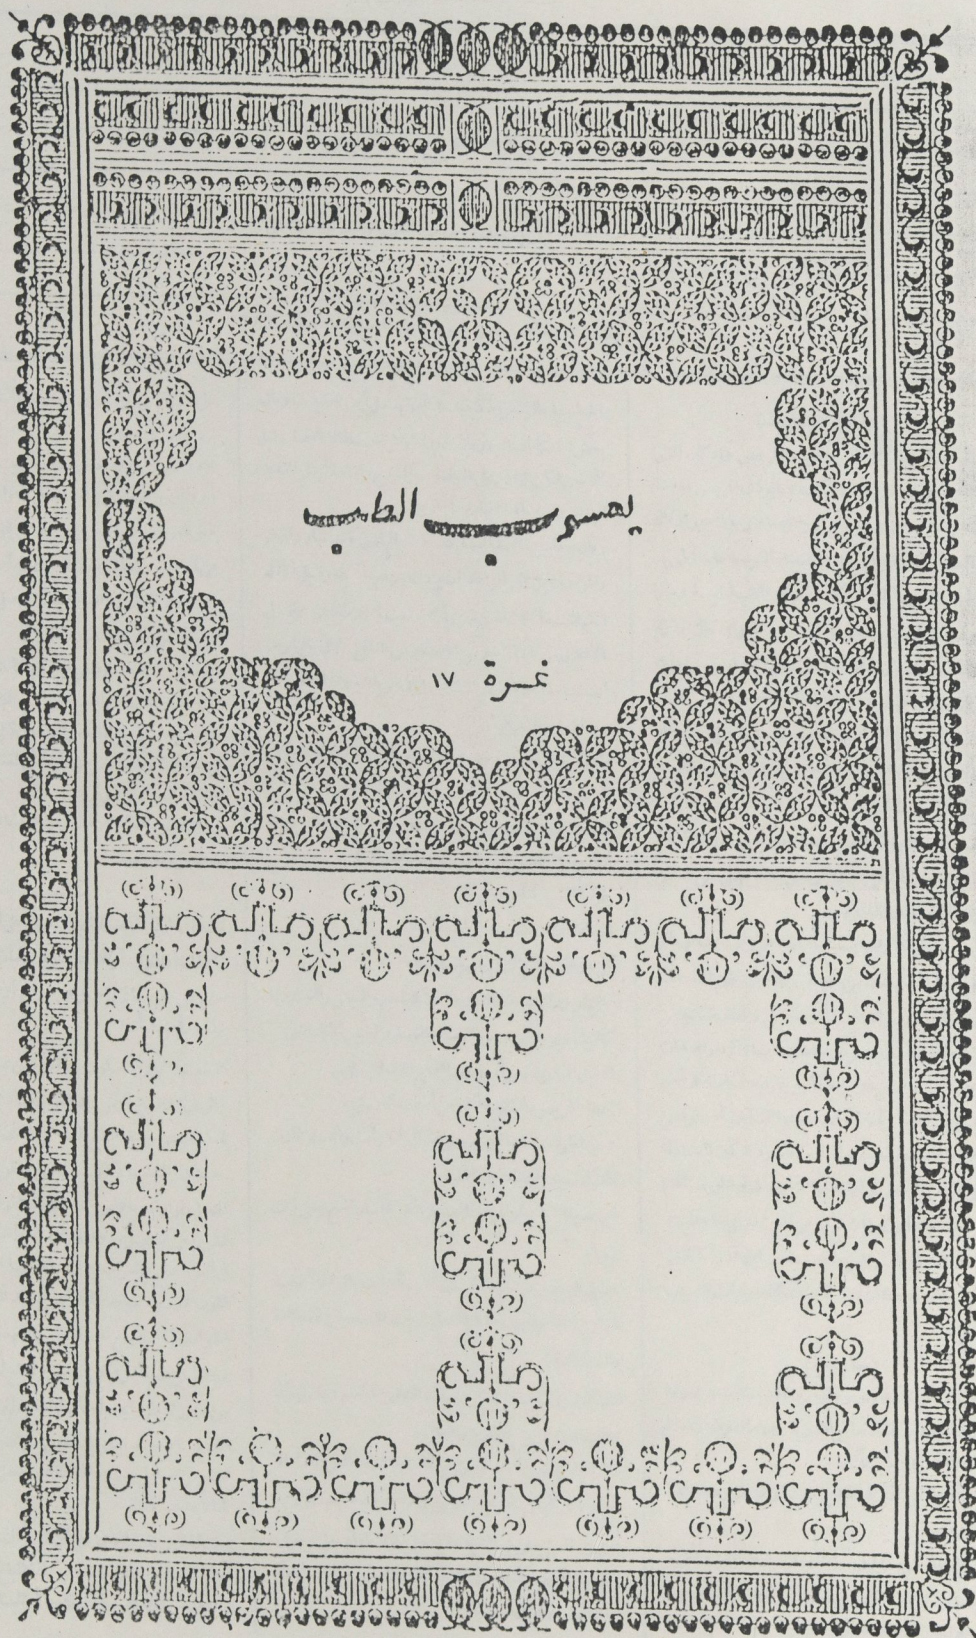 يعسوب الطب
نمرة ١٧